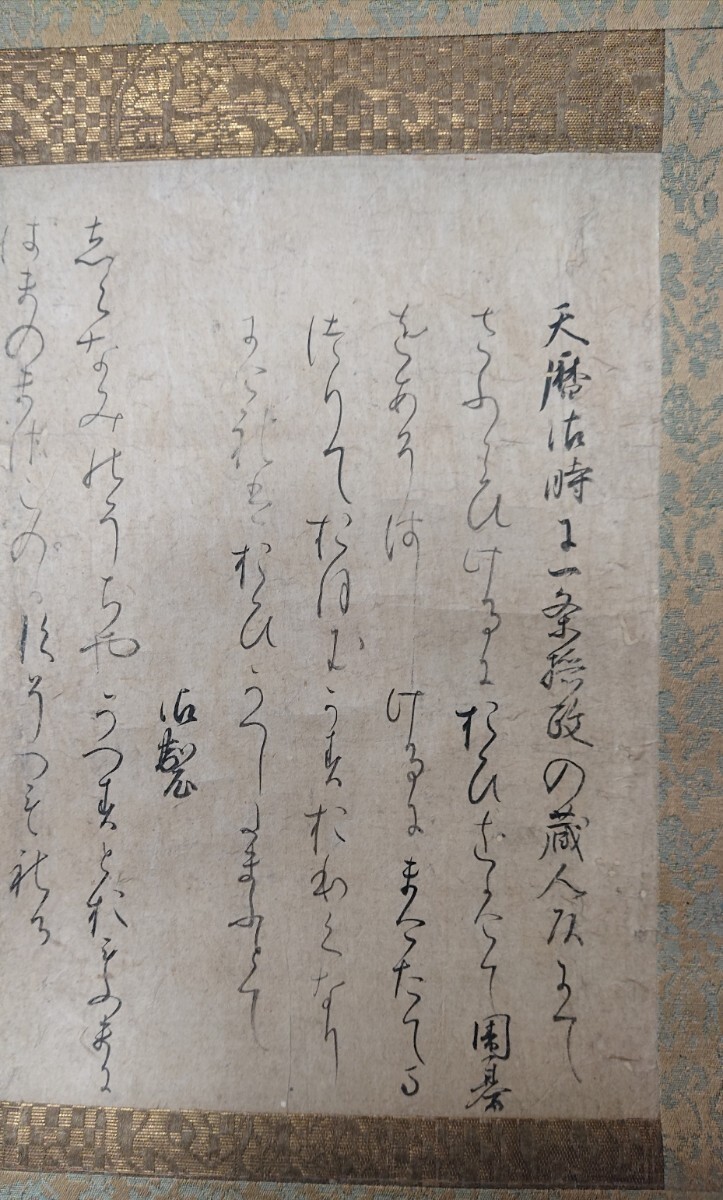 天暦御時に一条摂政の蔵人頭にて
さふらひけるにおひをかけて囲碁
をあそはしけるにまけたてま
つりておほむかすおほくなり
にけれはおひかへしたまふとて
御製
しらなみのうちやかへすとおもふまに
はまのまさこのかすそつもれる